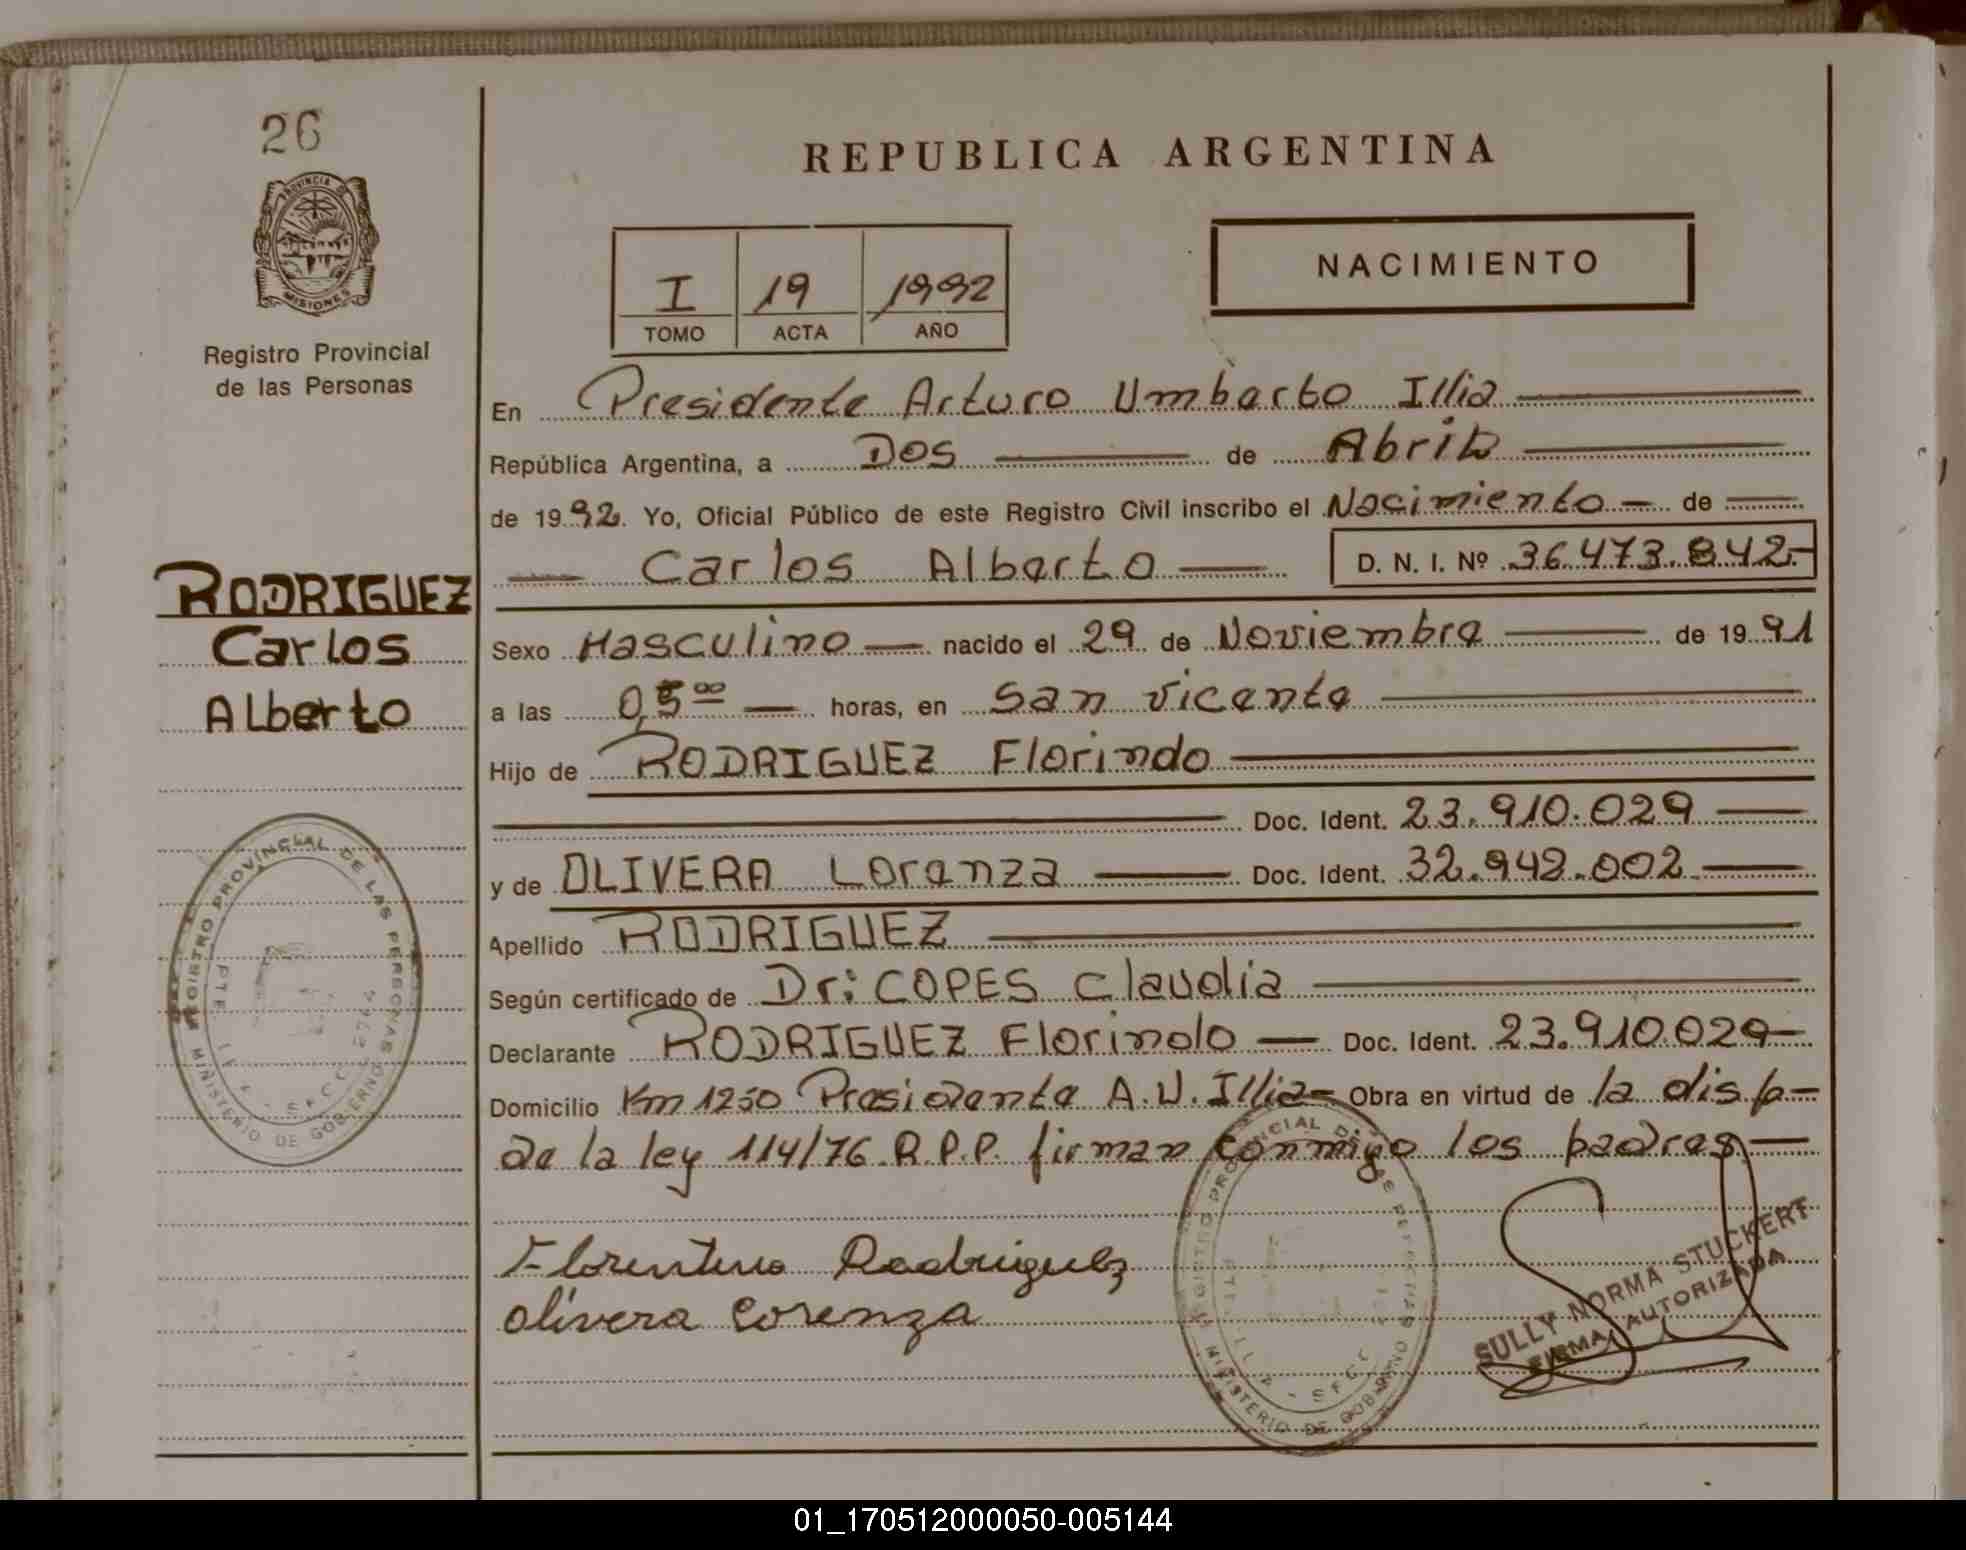 26
PROVINCIA DE
MISIONES
Registro Provincial
de las Personas
RODRIGUEZ
Carlos
Alberto
REGISTRO PROVINCIAL DE LAS PERSONAS
MINISTERIO DE GOBIERNO
REPUBLICA ARGENTINA
I 19 1992
TOMO ACTA AÑO
NACIMIENTO
En Presidente Arturo Umberto Illia
República Argentina, a Dos de Abril
de 1992. Yo, Oficial Público de este Registro Civil inscribo el Nacimiento - de
Carlos Alberto D. N. I. Nº 36.473.842-
Sexo Masculino nacido el 29 de Noviembre de 1991
a las 0,5 00 horas, en San Vicente
Hijo de RODRIGUEZ Florindo
Doc. Ident. 23.910.029
y de OLIVERA Lorenza Doc. Ident. 32.942.002.
Apellido RODRIGUEZ
Según certificado de Dr: COPES Claudia
Declarante RODRIGUEZ Florindo Doc. Ident. 23.910.029-
Domicilio Km 1250 Presidente A.U. Illia- Obra en virtud de la disp-
de la ley 114/76 R.P.P. firman conmigo los padres-
Florentino Rodriguez
Olivera Lorenza
SULLY NORMA STUCKERT
FIRMA AUTORIZADA
MINISTERIO DE GOBIERNO
01_170512000050-005144